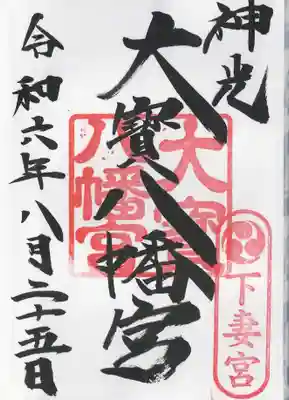 神光
大寳八幡宮
令和六年八月二十五日
大寳八幡宮
下妻宮